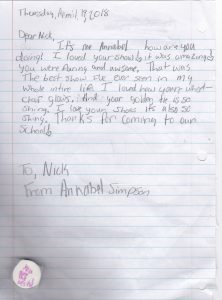 Thursday, April 19, 2018
Dear Nick,
It's me Annabel how are you
doing! I loved your show! it was amazing!
you were and awsome, That was
The best show I've ever seen in my
whole intire life I loved how your wheel
chair glows. And your is so
shiny. I love your shoes it's also so
shiny. Thanks for coming to our
School!
To, Nick
From Annabel Simpson